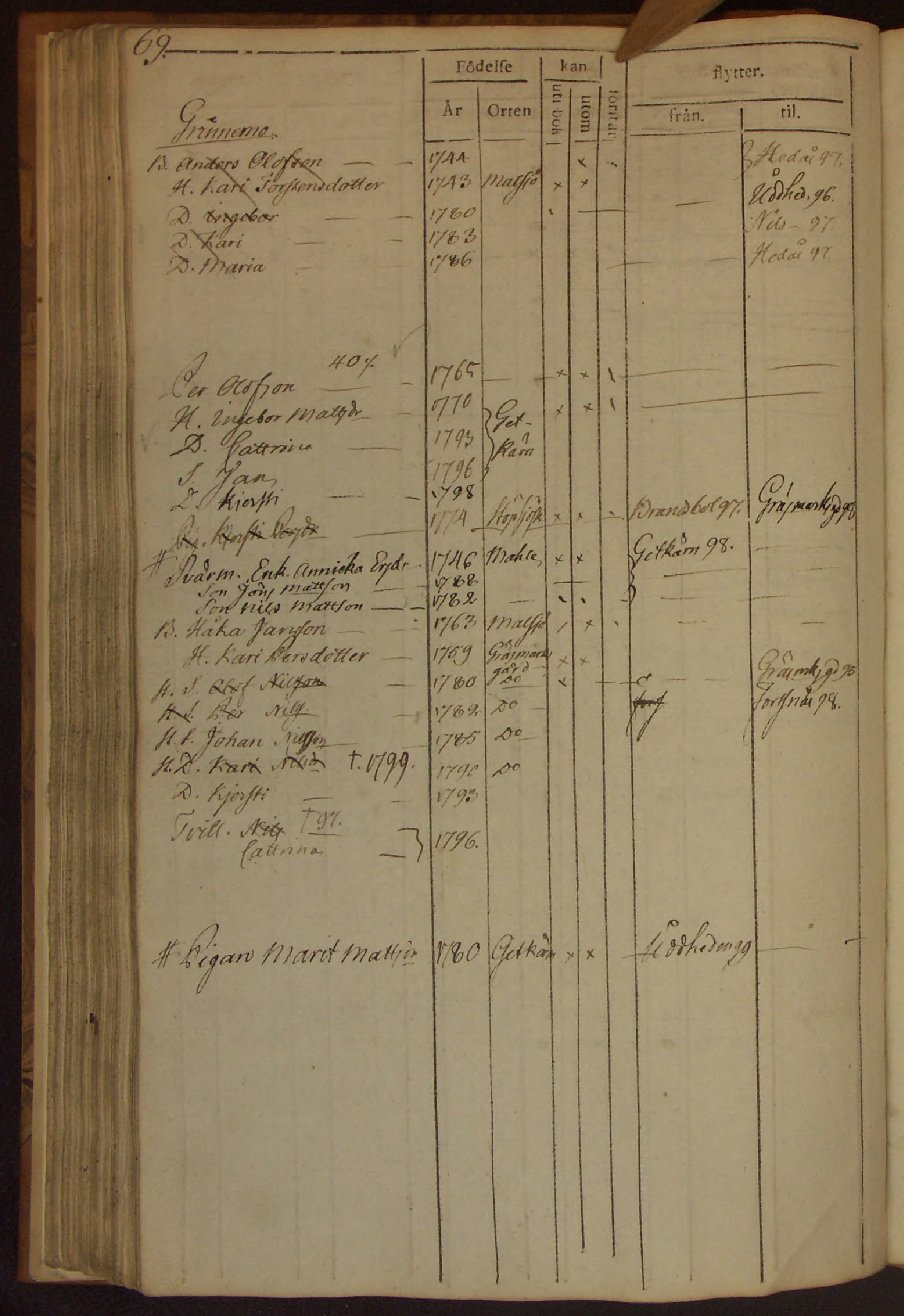 69.
Födelse kan flytter.
År Orten uti bok utom förstår från. til.
Grinnemo.
B. Anders Olofson 1744 × Hedås 97.
H. Kari Torstensdotter 1743 Matsjö × × Uddhed. 96.
D. Ingebor 1780 Nils - 97.
D. Kari 1783
D. Maria 1786 Hedås 97.
40%.
Per Olofson 1765 × ×
H. Ingebor Mattsdr 1770 × ×
D. Cattrina 1793 Get-
kärn
S. Jan 1796
D. Kjersti 1798
Kjersti Persdr 1774 × Brandbol 97. Gräsmarksgd 98
# Svärm. Enk. Annicka Ersdr 1746 × × Getkärn 98.
Son Jöns Mattson 1788
Son Nils Mattson 1782
B. Håka Jansson 1763 Matsjö ×
H. Kari Persdotter 1759 Gräsmarks
gård × ×
H. S. Olof Nilsson 1780 Do × Gräsmksgd 95
H. S. Per Nills. 1782. Do Torsnäs 98.
H. S. Johan Nilsson 1785 Do
H. D. Kari Nilsdr †. 1799. 1790 Do
D. Kjersti 1793
Tvill. Nils † 97.
Cattrina 1796.
# Pigan Marit Mattsdr 1780 Getkärn × × Uddheden 99